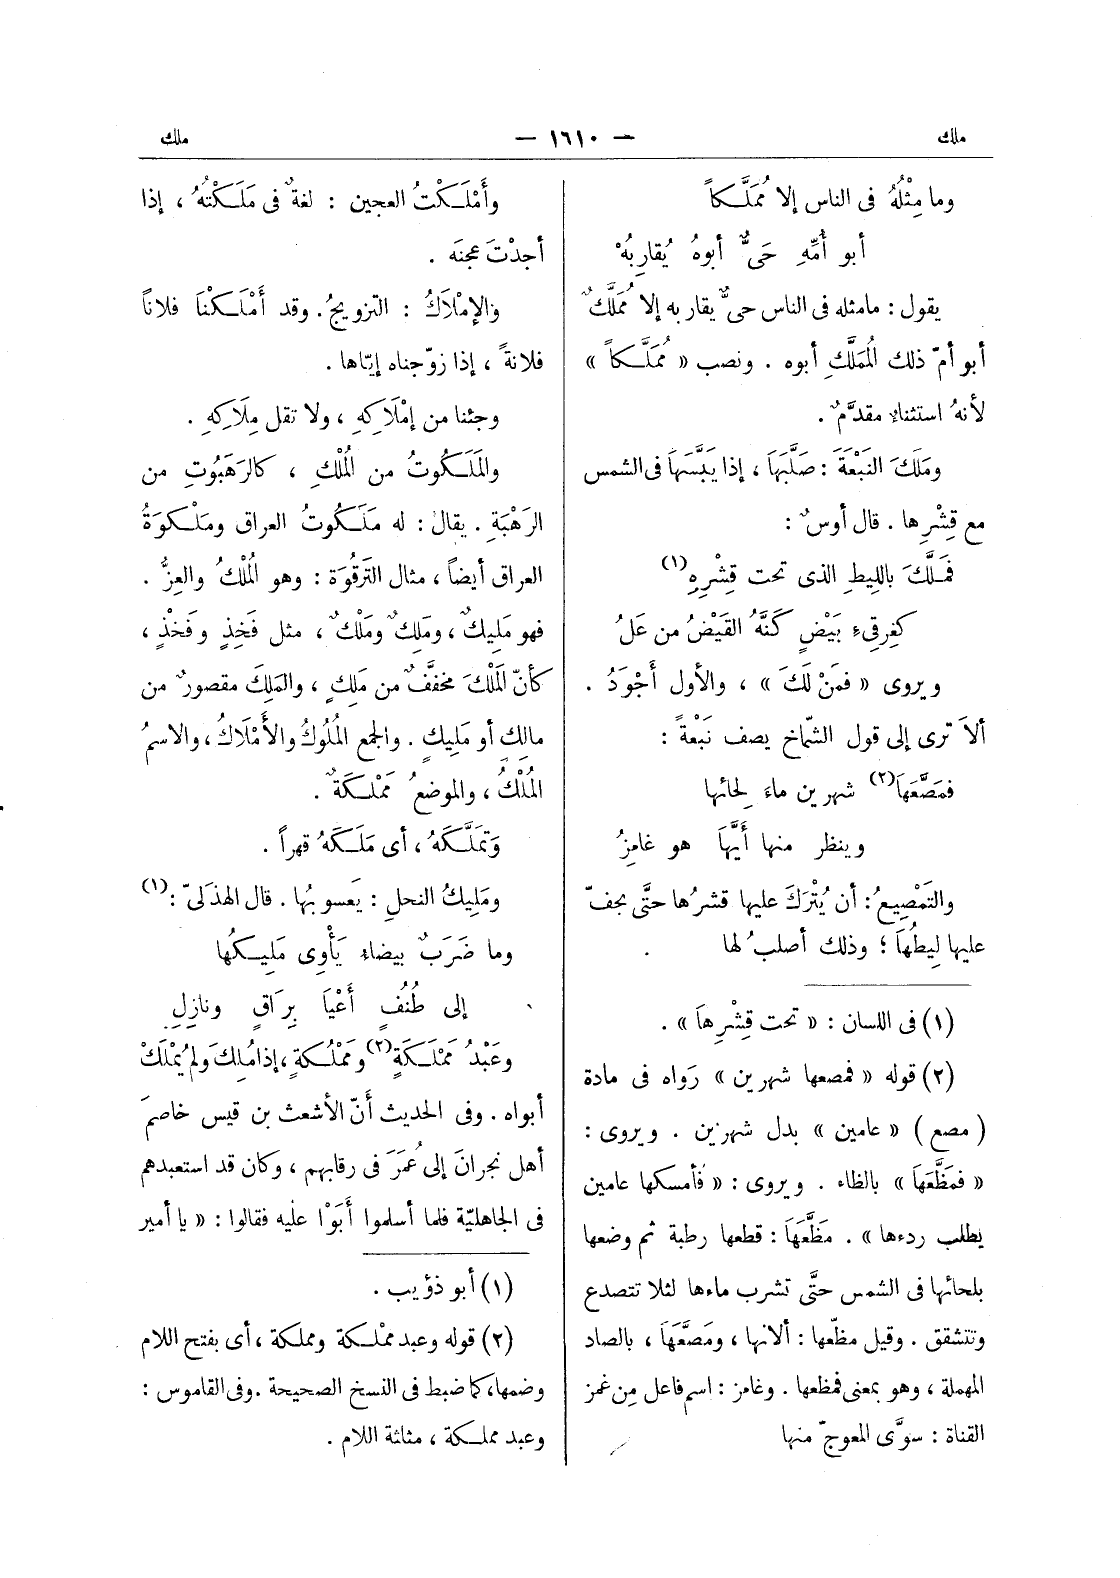 ملك — ١٦١٠ — ملك
وما مِثْلُهُ فى الناس إلا مُمَلَّكاً
أبو أُمِّهِ حَىٌّ أبوهُ يُقارِبُهْ
يقول : مامثله فى الناس حىٌّ يقاربه إلا مُمَلَّكٌ
أبو أمّ ذلك المُمَلَّكِ أبوه . ونصب « مُمَلَّكاً »
لأنهُ استثناء مقدَّمٌ .
ومَلَكَ النَبْعَةَ : صَلَّبَهَا ، إذا يَبَّسَهَا فى الشمس
مع قِشْرِها . قال أوسٌ :
فَمَلَّكَ بالليطِ الذى تحت قِشْرِهِ(١)
كغِرقِىءِ بَيْضٍ كَنَّهُ القَيْضُ من عَلُ
ويروى « فمَنْ لَكَ » ، والأول أَجْوَدُ .
ألاَ ترى إلى قول الشمّاخ يصف نَبْعةً :
فمَصَّعَهَا(٢) شهرين ماءَ لِحائها
وينظر منها أَيَّهَا هو غامِزُ
والتَمْصِيعُ : أن يُتْرَكَ عليها قشرُها حتَّى يجفّ
عليها لِيطُهَا ؛ وذلك أصلبُ لها .
(١) فى اللسان : « تحت قِشْرِهاَ » .
(٢) قوله « فمصعها شهرين » رَواه فى مادة
( مصع ) « عامين » بدل شهرين . ويروى :
« فمَظَّعَهاَ » بالظاء . ويروى : « فأمسكها عامين
يطلب ردءها » . مَظَّعَهَا : قطعها رطبة ثم وضعها
بلحائها فى الشمس حتَّى تشرب ماءها لئلا تتصدع
وتتشقق . وقيل مظّعها : ألانها ، ومَصَّعَهَا ، بالصاد
المهملة ، وهو بمعنى فمظعها . وغامز : اسم فاعل مِن غمز
القناة : سوَّى المعوجّ منها
وأَمْلَكْتُ العجين : لغةٌ فى مَلَكْتُهُ ، إذا
أجدْتَ عجنَه .
والإمْلَاكُ : التزويجُ . وقد أَمْلَكْنَا فلاناً
فلانةً ، إذا زوّجناه إيّاها .
وجئنا من إمْلَاكِهِ ، ولا تقل مِلَاكِهِ .
والمَلَكُوتُ من المُلْكِ ، كالرَهَبُوتِ من
الرَهْبَةِ . يقال : له مَلَكُوتُ العراق ومَلْكوَةُ
العراق أيضاً ، مثال التَرقُوَة : وهو المُلْكُ والعِزُّ .
فهو مَلِيكٌ ، ومَلِكٌ ومَلْكٌ ، مثل فَخِذٍ وفَخْذٍ ،
كأنّ المَلْكَ مخفَّفٌ من مَلِكٍ ، والمَلِكَ مقصورٌ من
مالِكٍ أو مَلِيكٍ . والجمع المُلُوكُ والأَمْلَاكُ ، والاسمُ
المُلْكُ ، والموضعُ مَمْلَكَةٌ .
وَتَمَلَّكَهُ ، أى مَلَكَهُ قهراً .
ومَلِيكُ النحلِ : يَعسوبُها . قال الهذلىّ :(١)
وما ضَرَبٌ بيضاء يَأْوِى مَلِيكُها
إلى طُنُفٍ أَعْيَا بِرَاقٍ ونازِلِ
وعَبْدُ مَمْلَكَةٍ(٢) ومَمْلُكةٍ ، إذا مُلِكَ ولم يُمْلَكْ
أبواه . وفى الحديث أنّ الأشعث بن قيس خاصمَ
أهل نجرانَ إلى عُمَرَ فى رقابهم ، وكان قد استعبدهم
فى الجاهليّة فلما أسلموا أَبَوْا عليه فقالوا : « يا أمير
(١) أبو ذؤيب .
(٢) قوله وعبد مملكة ومملكة ، أى بفتح اللام
وضمها، كما ضبط فى النسخ الصحيحة . وفى القاموس :
وعبد مملكة ، مثلثة اللام .